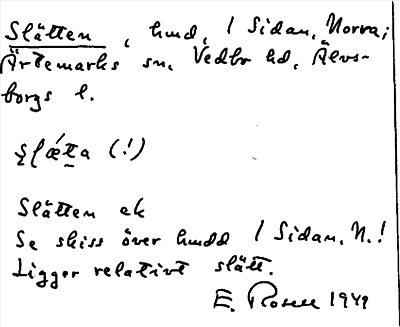 Slätten, hmd, 1 Sidan, Norra;
Ärtemarks sn, Vedbo hd, Älvs-
borgs l.
şl̨ǽt̲a (!)
Slätten ak
Se skiss över hmdd 1 Sidan, N.!
Ligger relativt slätt.
E. Rosell 1942